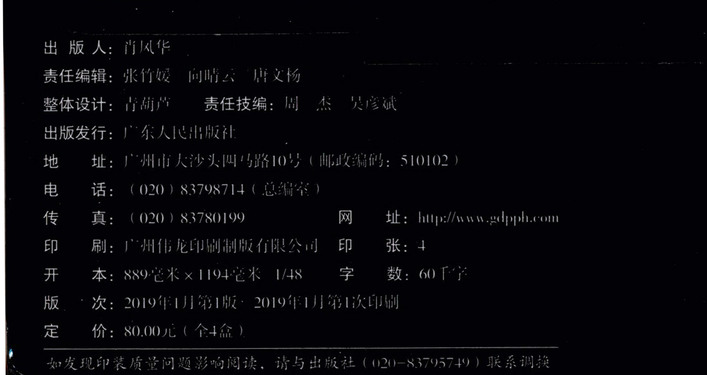 出版人：肖风华
责任编辑：张竹媛 向晴云 唐文杨
整体设计：青葫芦 责任技编：周杰 吴彦斌
出版发行：广东人民出版社
地址：广州市大沙头四马路10号（邮政编码：510102）
电话：（020）83798714（总编室）
传真：（020）83780199 网址：http://www.gdpph.com
印刷：广州伟龙印刷制版有限公司 印张：4
开本：889毫米×1194毫米 1/48 字数：60千字
版次：2019年1月第1版 2019年1月第1次印刷
定价：80.00元（全4盒）
如发现印装质量问题影响阅读，请与出版社（020-83795749）联系调换